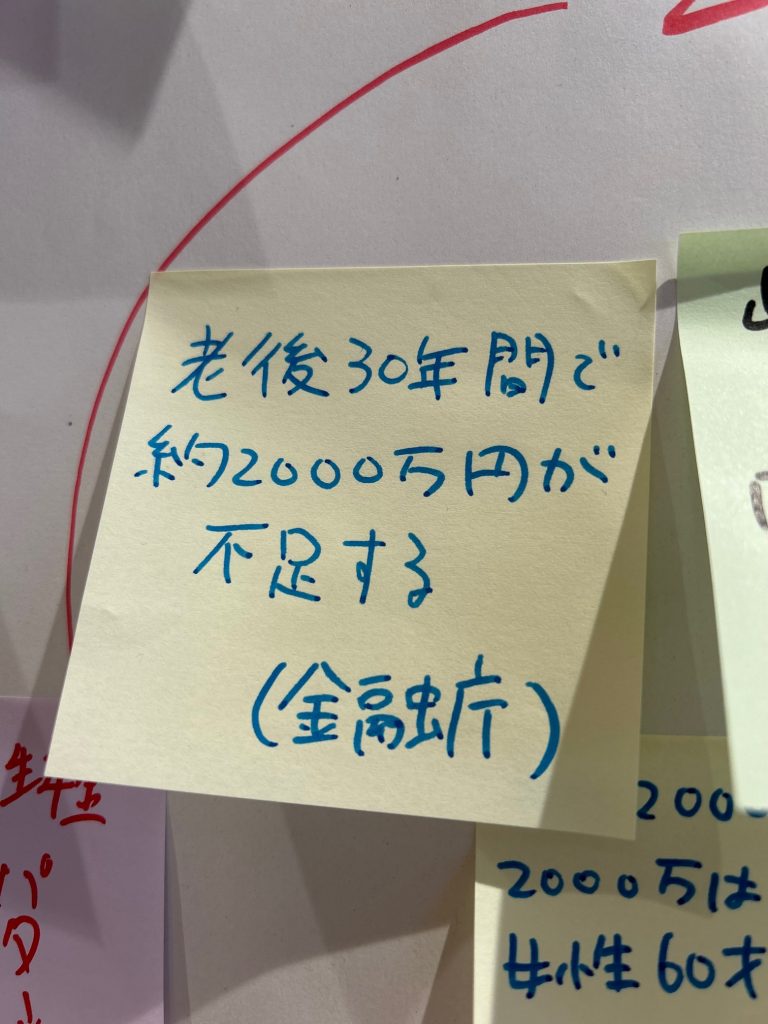 老後30年間で
約2000万円が
不足する
(金融庁)
2000
2000万は
女性60才
パタ